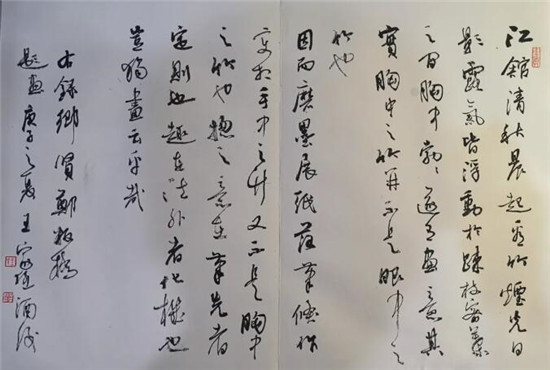 江館清秋晨起看竹煙光日
影露氣皆浮動於疎枝密葉
之間胸中勃勃遂有畫意其
實胸中之竹并不是眼中之
竹也
因而磨墨展紙落筆倏作
变相手中之竹又不是胸中
之竹也總之意在筆先者
定則也趣在法外者化機也
豈獨畫云乎哉
右錄鄉賢鄭板橋
題畫庚子之夏王家酒後